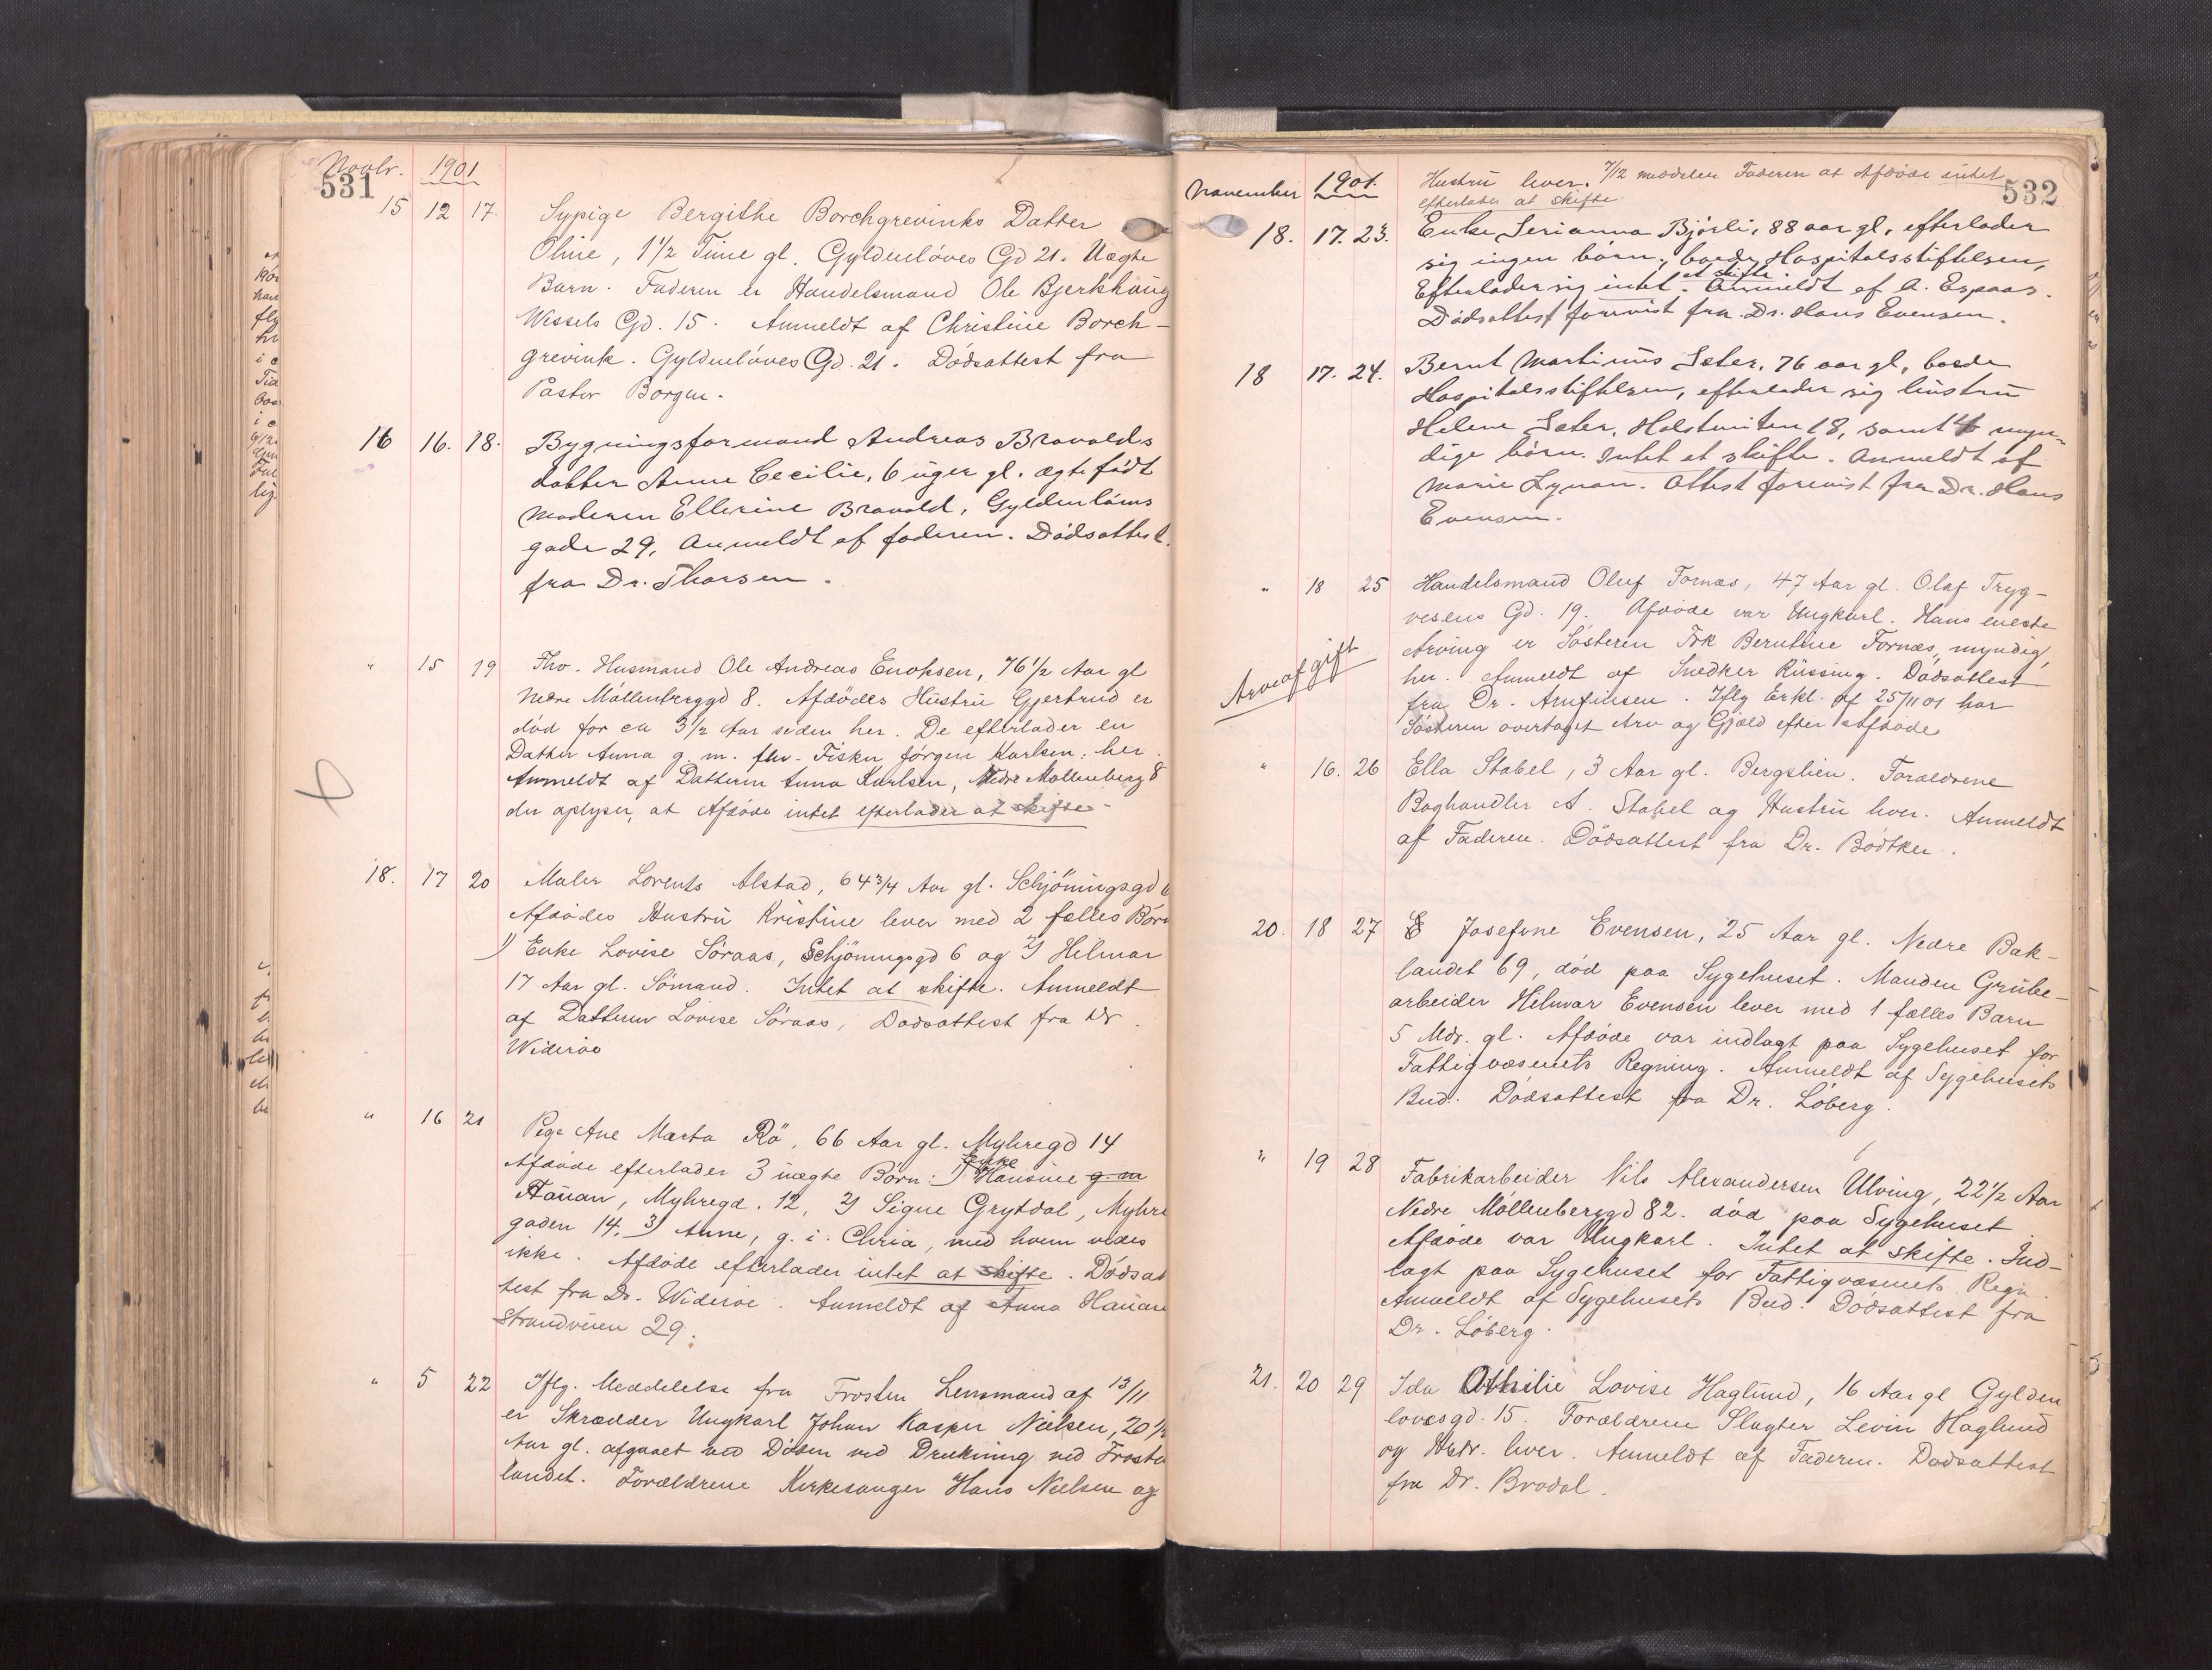 Novbr. 1901
531
15 12 17. Sypige Bergithe Borchgrevinks Datter
Oline, 1 1/2 Time gl. Gyldenløves Gd 21. Uægte
Barn. Faderen er Handelsmand Ole Bjerkhaug
Wessels Gd. 15. Anmeldt af Christine Borch-
grevink. Gyldenløves Gd. 21. Dødsattest fra
Pastor Borgen.
16 16. 18. Bygningsformand Andreas Bravolds
datter Anne Cecilie, 6 uger gl. ægte født
Moderen Ellerine Bravold, Gyldenløws
gade 29, Anmeldt af faderen. Dødsattest
fra Dr. Thorsen.
" 15 19 Fhv. Husmand Ole Andreas Enoksen, 76 1/2 Aar gl
Nedre Møllenberggd 8. Afdødes Hustru Gjertrud er
død for ca 3 1/2 Aar siden her. De efterlader en
Datter Anna g. m. fhv. Fisker Jørgen Karlsen, her.
Anmeldt af Datteren Anna Karlsen, Nedre Møllenberg 8
der oplyser, at Afdøde intet efterlader at skifte-
18. 17 20 Maler Lorents Alstad, 64 3/4 Aar gl. Schjöningsgd 6
Afdødes Hustru Kristine lever med 2 fælles Børn
1) Enke Lovise Søraas, Schjöningsgd 6 og 2) Hilmar
17 Aar gl. Sømand. Intet at skifte. Anmeldt
af Datteren Lovise Søraas, Dødsattest fra Dr.
Widerøe
" 16 21 Pige Ane Marta Rö, 66 Aar gl. Myhregd 14
Enke
Afdøde efterlader 3 uægte Børn: 1) Hansine g. m
Hauan, Myhregd. 12, 2) Signe Grytdal, Myhre
gaden 14, 3) Anne, g. i. Chria, med hvem vides
ikke. Afdøde efterlader intet at skifte. Dødsat
test fra Dr. Widerøe. Anmeldt af Anna Hauan
Strandveien 29.
" 5 22 Iflg. Meddelelse fra Frosten Lensmand af 13/11
er Skrædder Ungkarl Johan Kasper Nielsen, 20 1/2
Aar gl. afgaaet ved Døden ved Drukning ved Frosta
landet. Forældrene Kirkesanger Hans Nielsen og
November 1901.
532
Hustru lever. 7/12 meddeler Faderen at Afdøde intet
efterlader at skifte
18. 17. 23. Enke Serianna Bjørli, 88 aar gl, efterlader
sig ingen børn, boede Hospitalsstiftelsen,
at skifte
Efterlader sig intet. Anmeldt af A. Espaas.
Dødsattest forevist fra Dr. Hans Evensen.
18 17. 24. Bernt Martinus Sæter, 76 aar gl, boede
Hospitalsstiftelsen, efterlader sig hustru
Helene Sæter, Holstveiten 18, samt 4 myn-
dige børn. Intet at skifte. Anmeldt af
Marie Lynan. Attest forevist fra Dr. Hans
Evensen.
" 18 25 Handelsmand Oluf Fornæs, 47 Aar gl. Olaf Tryg-
vesens Gd. 19. Afdøde var Ungkarl. Hans eneste
Arving er Søsteren Frk Berntine Fornæs, myndig,
her. Anmeldt af Snedker Rüssing. Dødsattest
fra Dr. Arnfinsen. Iflg Erkl. af 25/11 01 har
Søsteren overtaget Arv og Gjæld efter Afdøde
Arveafgift
" 16. 26 Ella Stabel, 3 Aar gl. Bergslien. Forældrene
Boghandler A. Stabel og Hustru lever. Anmeldt
af Faderen. Dødsattest fra Dr. Bødtker.
20. 18 27 Josefine Evensen, 25 Aar gl. Nedre Bak-
landet 69, død paa Sygehuset. Manden Grube-
arbeider Helmar Evensen lever med 1 fælles Barn
5 Mdr. gl. Afdøde var indlagt paa Sygehuset for
Fattigvæsenets Regning. Anmeldt af Sygehusets
Bud. Dødsattest fra Dr. Løberg.
" 19 28 Fabrikarbeider Nils Alexandersen Ulving, 22 1/2 Aar
Nedre Møllenberggd 82. død paa Sygehuset
Afdøde var Ungkarl. Intet at skifte. Ind-
lagt paa Sygehuset for Fattigvæsenets Regn.
Anmeldt af Sygehusets Bud. Dødsattest fra
Dr. Løberg.
21. 20 29 Ida Othilie Lovise Haglund, 16 Aar gl Gylden
løvesgd. 15. Forældrene Slagter Levin Haglund
og Hstr. lever. Anmeldt af Faderen. Dødsattest
fra Dr. Brodal.